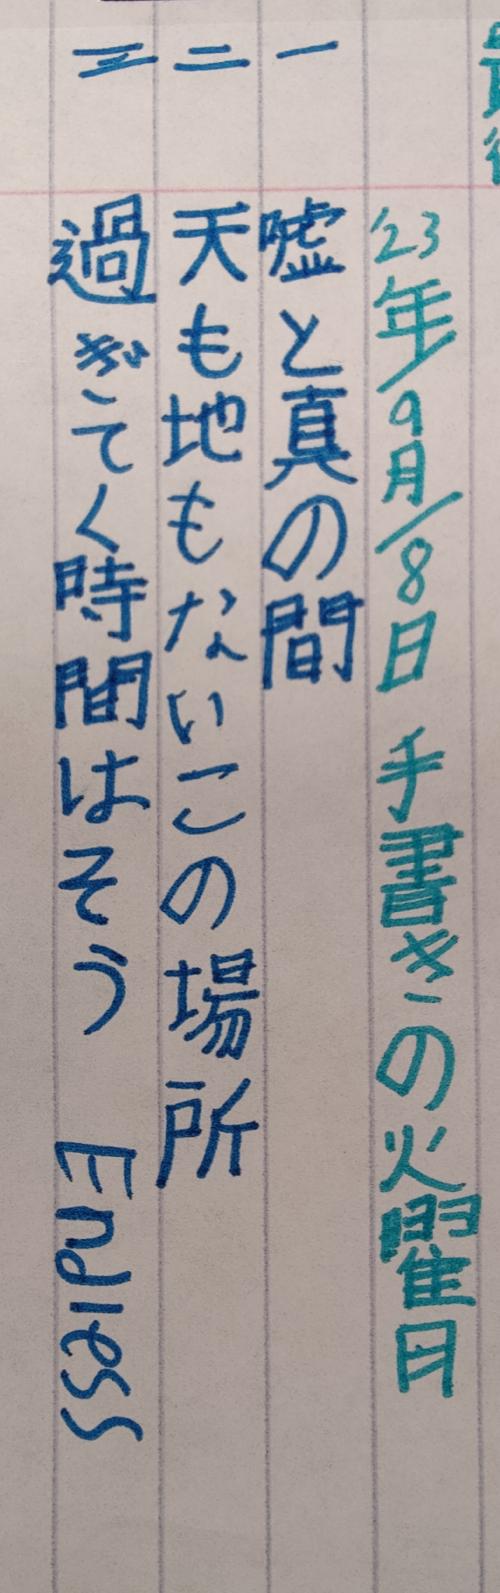 '23年/9月/8日 手書きの火曜日
一 嘘と真の間
二 天も地もないこの場所
三 過ぎてく時間はそう Endless